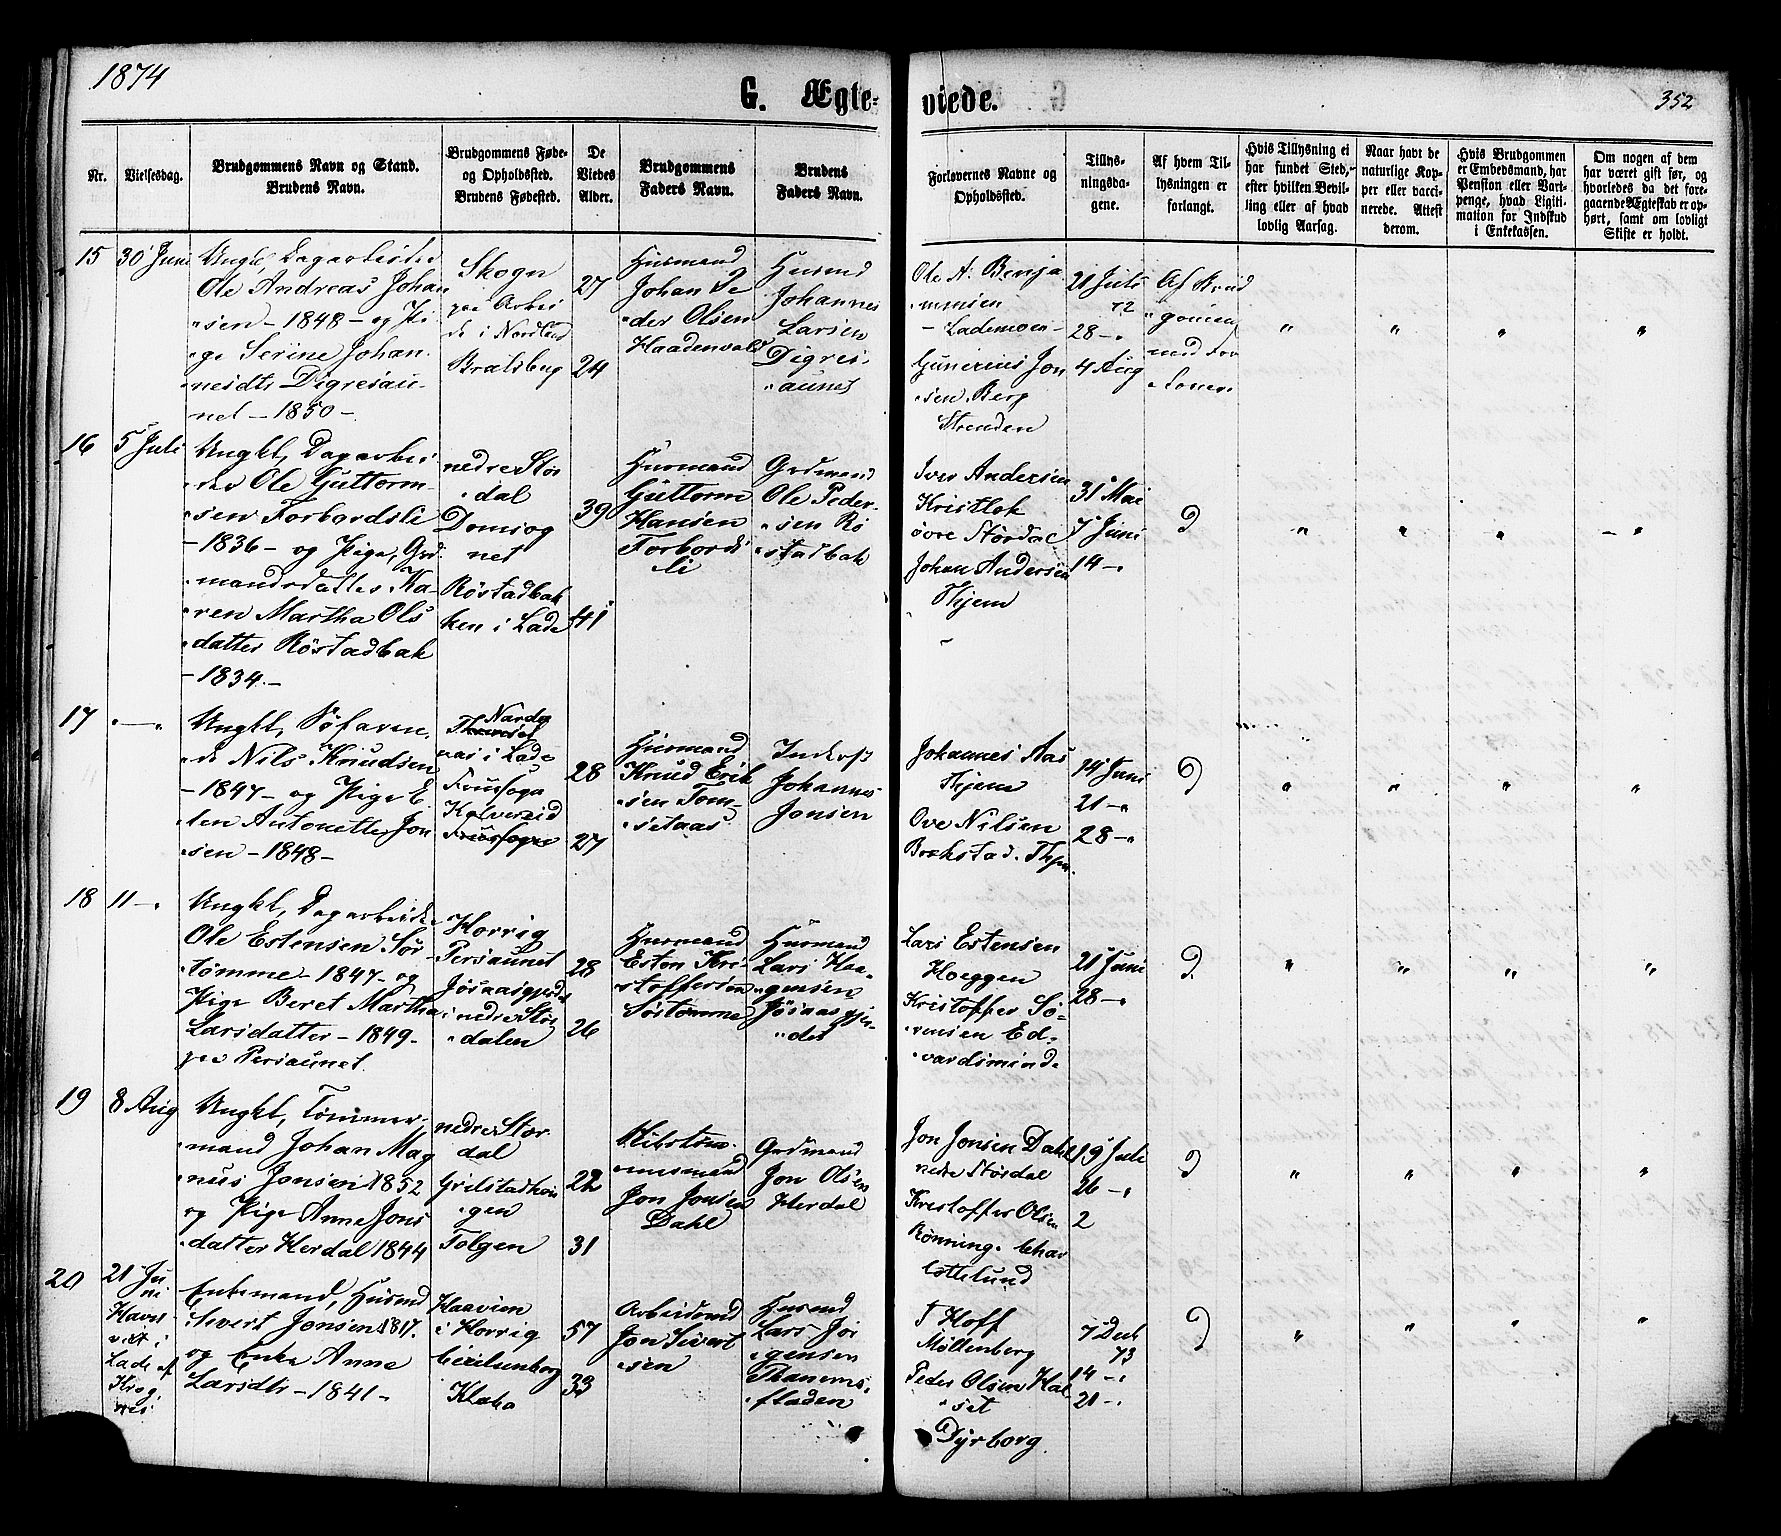 1874
G. Ægte-
viede.
352
Nr.
Vielsesdag.
Brudgommens Navn og Stand.
Brudens Navn.
Brudgommens Føde-
og Opholdssted.
Brudens Fødested.
De
Viedes
Alder.
Brudgommens
Faders Navn.
Brudens
Faders Navn.
Forlovernes Navne og
Opholdssted.
Tillys-
ningsda-
gene.
Af hvem Til-
lysningen er
forlangt.
Hvis Tillysning ei
har fundet Sted,
efter hvilken Bevil-
ling eller af hvad
lovlig Aarsag.
Naar havt de
naturlige Kop-
per eller vacci-
nerede. Attest
derom.
Hvis Brudgommen
er Embedsmand, har
Pension eller Vart-
penge, hvad Ligiti-
mation for Indskud
i Enkekassen.
Om nogen af dem
har været gift før, og
hvorledes da det fore-
gaaende Ægteskab er op-
hørt, samt om lovligt
Skifte er holdt.
15
30 Juni
Ungkl, Dagarbeider
Ole Andreas Johan
sen - 1848 - og Pi
ge Serine Johan
nesdtr Digresau
net - 1850 -
Skogn
paa Arbei
de i Nordland
Bratsberg
27
24
Husmand
Johan Pe
der Olsen
Haadenvold
Husmd
Johannes
Larsen
Digres
aunet
Ole A. Benja
minsen
- Lademoen -
Gunerius Jon
sen Berg
Strinden
21 Juli
72
28 - "
4 Aug
Af Brud
gommen
med For
lover.
16
5 Juli
Ungkl, Dagarbei
der Ole Guttorm
sen Forbordsli
- 1836 - og Pige, Grd
mandsdatter Ka
ren Martha Ols
datter Röstadbak
- 1834 -
nedre Stör
dal
Domsog
net
Röstadbak
ken i Lade
39
41
Husmand
Guttorm
Hansen
Forbords
li
Grdmand
Ole Peder
sen Rö
stadbak
Iver Andersen
övre Stördal
Johan Andersen
Thjem
31 Mai
7 Juni
14 - "
17
Ungkl, Söfaren
de Nils Knudsen
- 1847 - og Pige E
len Antonette Jon
sen - 1848 -
aas i Lade
Fruesogn
28
27
Husmand
Knud Erik
sen Tom
setaas
Johannes
Jonsen
Johannes Aas
Thjem
Ove Nilsen
Bækstad. Thjm
14 Juni
21 - "
28 - "
18
11 - "
Ungkl, Dagarbeider
Ole Estensen Sör
tömme - 1847 - og
Pige Beret Martha
Larsdatter - 1849 -
paa Persaunet.
Horrig
Persaunet
Jösaasgjerdet
i nedre Stör
dalen
28
26
Husmand
Esten Kri
stoffersen
Sörtömme
Husmand
Lars Haa
gensen
Jösaasgjer
det
Lars Estensen
Hoeggen
Kristoffer Sö
rensen Ed
vardsminde
21 Juni
28 - "
19
8 Aug
Ungkl, Tömmer
mand Johan Mag
nus Jonsen 1852
og Pige Anne Jons
datter Herdal 1844
nedre Stör
dal
Grilstadhau
gen
Tolgen
22
31
Jon Jonsen
Dahl
Grdmand
Jon Olsen
Herdal
Jon Jonsen Dahl
nedre Stördal
Kristoffer Olsen
Rönning. Char
lottelund
19 Juli
26 - "
2
20
21 Ju
ni
Lade af
Enkemand, Husmd
Sivert Jonsen 1817.
og Enke Anne
Larsdtr - 1841 -
Haavien
i Horrig
Cecilienborg
Klæbo
57
33
Arbeidsmd
Jon Sivert
sen
Husmd
Lars Jör
gensen
Thanems
fladen
T Hoff
Möllenberg
Peder Olsen Hal
set
Dyrborg.
7 Decb
73
14 - "
21 - "